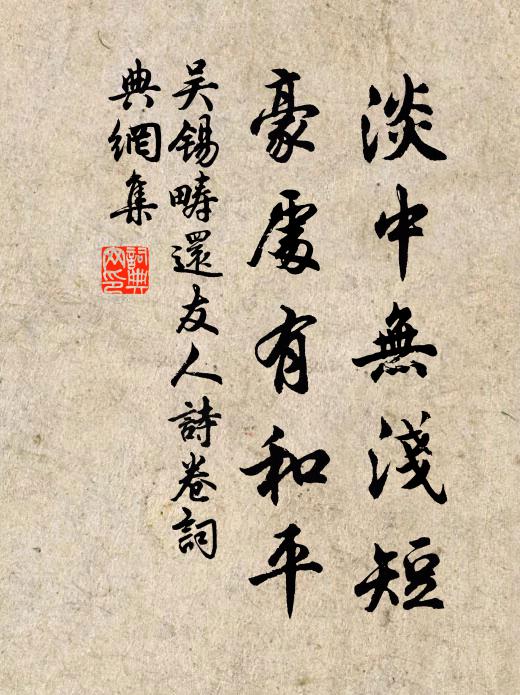 淡中無淺短
豪處有和平
吴錫疇還友人詩卷詞
典網集
詞典
网印